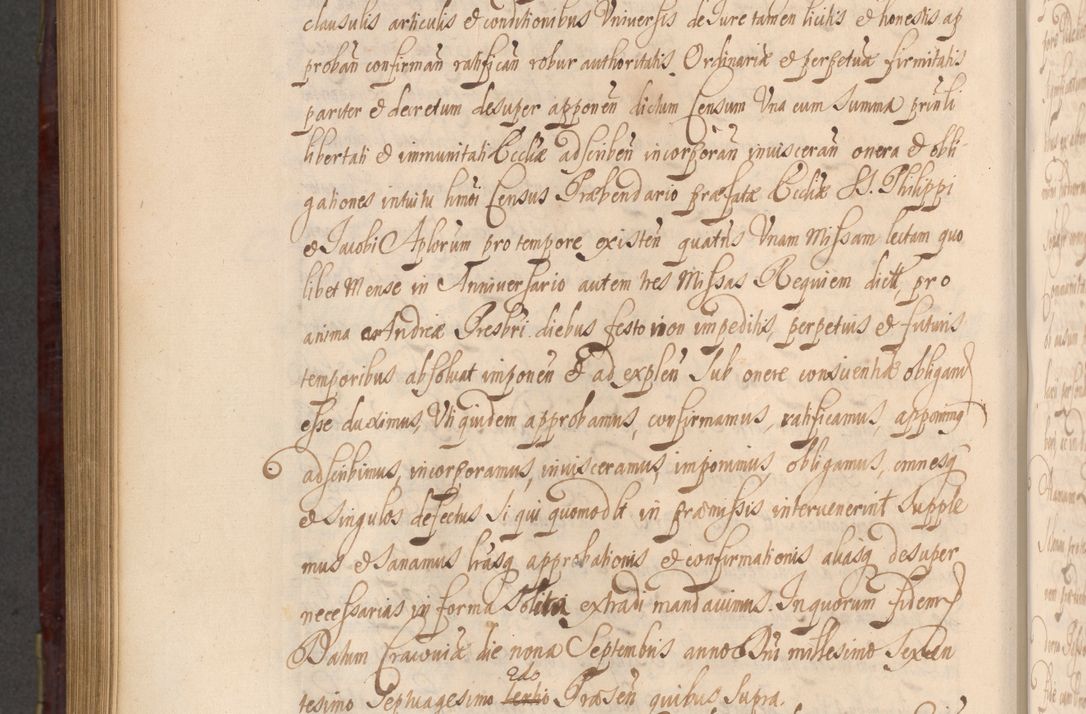 clausulis articulis & conditionibus Universis de Jure tamen licitis & honestis ap
proban̄ confirman̄ ratifican̄ robur authoritatis Ordinariæ & perpetuæ firmitatis
pariter & decretum desuper apponen̄ dictum Censum Una cum Summa prinl̄i
libertati & immunitati Eccl̄iæ adscriben̄ incorporan̄ inviscerān onera & obli
gationes intuitu hmo̅i Census Præbendario præfatæ Eccl̄iæ SS. Philippi
& Jacobi Ap̄lorum pro tempore existen̄ quatn̄s Unam Missam lectam quo
libet Mense in Anniversario autem tres Missas Requiem dictt̄, pro
anima Andreæ Presbri diebus festo non impeditis, perpetuis & futuris
temporibus absolvat imponen̄ & ad explen̄ Sub onere consuentiæ obligand
esse duximus, Uti quidem approbamus, confirmamus, ratificamus, apponimq
adscribimus, incorporamus, invisceramus, imponimus obligamus, omnesq
& Singulos defectus Si qui quomodl̄t in præmissis intervenerint Supple
mus & Sanamus l̄rasq approbationis & confirmationis aliasq desuper
necessarias in forma Solita extradi mandavimus. In quorum fidem
Datum Cracoviæ die nona Septembris anno Dn̄i millesimo Sexcen
tesimo Septuagesimo 2do Præsen̄ quibus Supra.